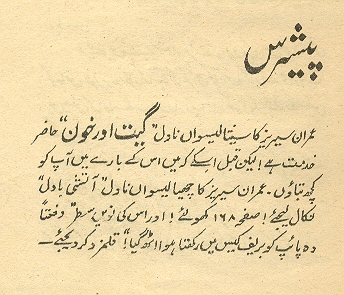 پیشرس
عمران سیریز کا سینتالیسواں ناول "گیت اور خون" حاضر
خدمت ہے! لیکن قبل اسکے کہ میں اس کے بارے میں آپ کو
کچھ بتاؤں۔ عمران سیریز کا چھیالیسواں ناول "آتشی بادل"
نکال لیجئے! صفحہ ۱۶۸ کھولئے! اور اس کی نویں سطر "دفعتاً
وہ پائپ کو بریف کیس میں رکھتا ہوا اٹھ گیا"! قلمزد کر دیجئے۔